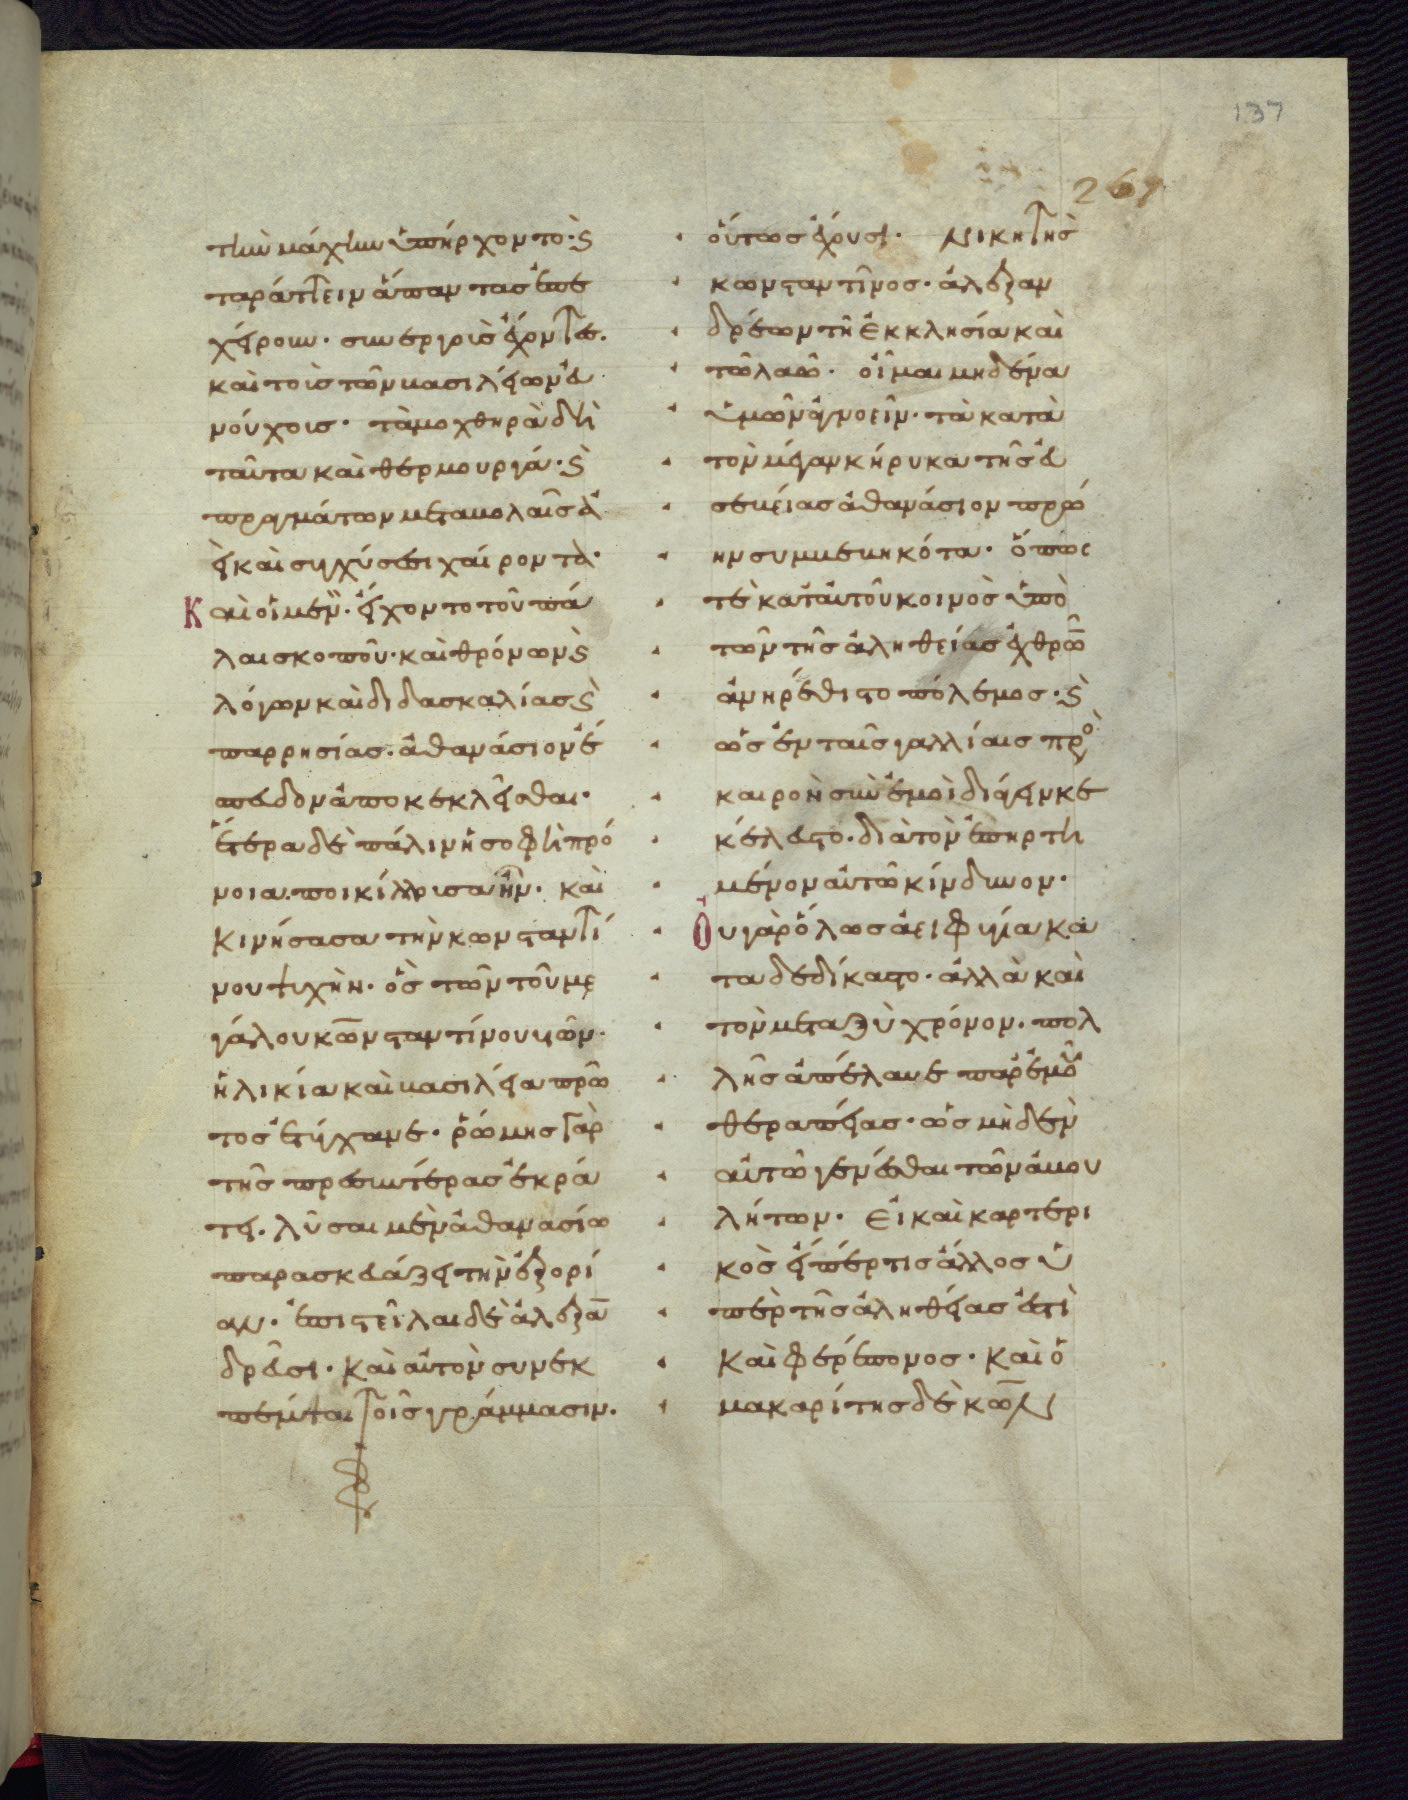 137
267
την μάχην ὑπήρχοντο· ϛ
ταράττειν ἅπαντας ἐπε
χείρουν. συνεργοῖς ἔχοντες
καὶ τοῖς τῶν βασιλείων εὐ
νούχοις· τὰ μοχθηρὰ δὴ
ταῦτα καὶ θερμουργά· ϛ
πραγμάτων μεταβολαῖς ἀ
εὶ καὶ συγχύσεσι χαίροντα·
Καὶ οἱ μὲν εἴχοντο τοῦ πά
λαι σκοποῦ· καὶ θρόνων ϛ
λόγων καὶ διδασκαλίας ϛ
παρρησίας. ἀθανάσιον ἔ
σπευδον ἀποκεκλεῖσθαι·
ἕτερα δὲ πάλιν ἡ σοφὴ πρό
νοια ποικίλλουσα ἦν· καὶ
κινήσασα τὴν κωνσταντί
νου ψυχὴν· ὃς τῶν τοῦ με
γάλου κωνσταντίνου υἱῶν·
ἡλικία καὶ βασιλεία πρῶ
τος ἐτύγχανε· ῥώμης γὰρ
τῆς πρεσβυτέρας ἐκρά
τει. λῦσαι μὲν ἀθανασίω
παρασκευάζει τὴν ἐξορί
αν· ἐπιστεῖλαι δὲ ἀλεξαν
δρεῦσι· καὶ αὐτὸν συνεκ
πέμψαι τοῖς γράμμασιν.
οὕτως ἔχουσι· νικητὴς
κωνσταντῖνος· ἀλεξαν
δρέων τῆ ἐκκλησία καὶ
τῶ λαῶ· οἶμαι μηδένα
ὑμῶν ἀγνοεῖν· τὰ κατὰ
τὸν μέγαν κήρυκα τῆς εὐ
σεβείας ἀθανάσιον πρώ
ην συμβεβηκότα· ὅπως
τε κατ' αὐτοῦ κοινὸς ὑπὸ
τῶν τῆς ἀληθείας ἐχθρῶν
ἀνηρέθιστο πόλεμος· ϛ
ὡς ἐν ταῖς γαλλίαις πρὸ
καιρὸν σὺν ἐμοὶ διάγειν κε
κέλευστο. διὰ τὸν ἐπηρτη
μένον αὐτῶ κίνδυνον·
Οὐ γὰρ ὅλως ἀειφυγία κα
ταδεδίκαστο· ἀλλὰ καὶ
τὸν μεταξὺ χρόνον. πολ
λῆς ἀπέλαυε παρ' ἐμοῦ
θεραπείας· ὡς μηδὲν
αὐτῶ γενέσθαι τῶν ἀβου
λήτων· εἰ καὶ καρτερι
κὸς εἴπέρ τις ἄλλος ὑ
πὲρ τῆς ἀληθείας ἐστὶ
καὶ φερέπονος· καὶ ὁ
μακαρίτης δὲ κων